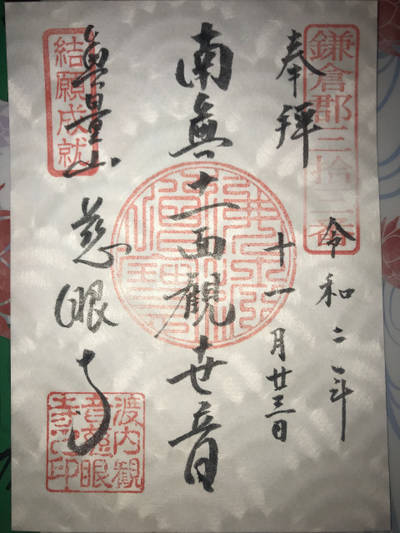 鎌倉郡三拾三番
奉拝
令和二年
十一月廿三日
南無十一面觀世音
結願成就
無量山 慈眼寺
渡内観
音慈眼
寺之印